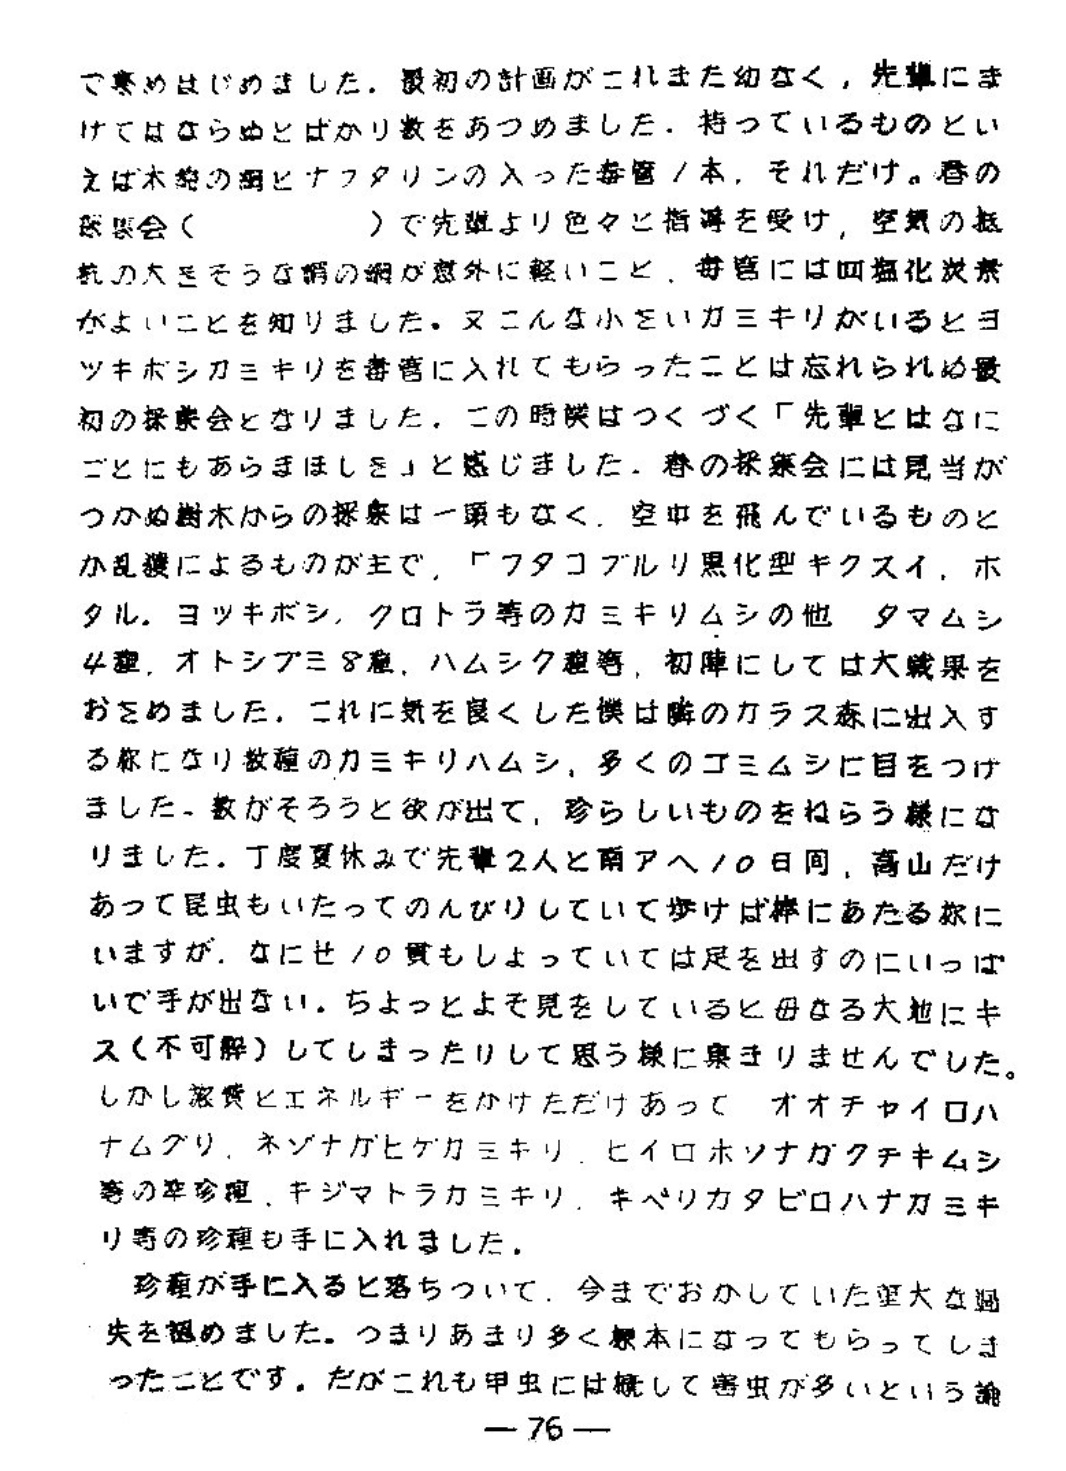 で集めはじめました．最初の計画がこれまた幼なく，先輩にま
けてはならぬとばかり数をあつめました．持っているものとい
えば木綿の網とナフタリンの入った毒管１本，それだけ。春の
採集会（　　　　　）で先輩より色々と指導を受け，空気の抵
抗の大きそうな絹の網が意外に軽いこと，毒管には四塩化炭素
がよいことを知りました．又こんな小さいカミキリがいるとヨ
ツキボシカミキリを毒管に入れてもらったことは忘れられぬ最
初の採集会となりました．この時僕はつくづく「先輩とはなに
ごとにもあらまほしき」と感じました．春の採集会には見当が
つかぬ樹木からの採集は一頭もなく，空中を飛んでいるものと
か乱獲によるものが主で，「フタコブルリ黒化型キクスイ，ホ
タル．ヨツキボシ，クロトラ等のカミキリムシの他　タマムシ
４種，オトシブミ８種，ハムシク種等，初陣にしては大戦果を
おさめました．これに気を良くした僕は隣のカラス森に出入す
る様になり数種のカミキリハムシ，多くのゴミムシに目をつけ
ました．数がそろうと欲が出て，珍らしいものをねらう様にな
りました．丁度夏休みで先輩２人と南アへ１０日間，高山だけ
あって昆虫もいたってのんびりしていて歩けば棒にあたる様に
いますが．なにせ１０貫もしょっていては足を出すのにいっぱ
いで手が出ない．ちょっとよそ見をしていると母なる大地にキ
ス（不可解）してしまったりして思う様に集まりませんでした。
しかし旅費とエネルギーをかけただけあって　オオチャイロハ
ナムグリ，ネジナガヒゲカミキリ，ヒイロホソナガクチキムシ
等の準珍種，キジマトラカミキリ，キベリカタビロハナカミキ
リ等の珍種も手に入れました．
珍種が手に入ると落ちついて，今までおかしていた重大な過
失を認めました．つまりあまり多く標本になってもらってしま
ったことです．だがこれも甲虫には概して害虫が多いという論
—76—